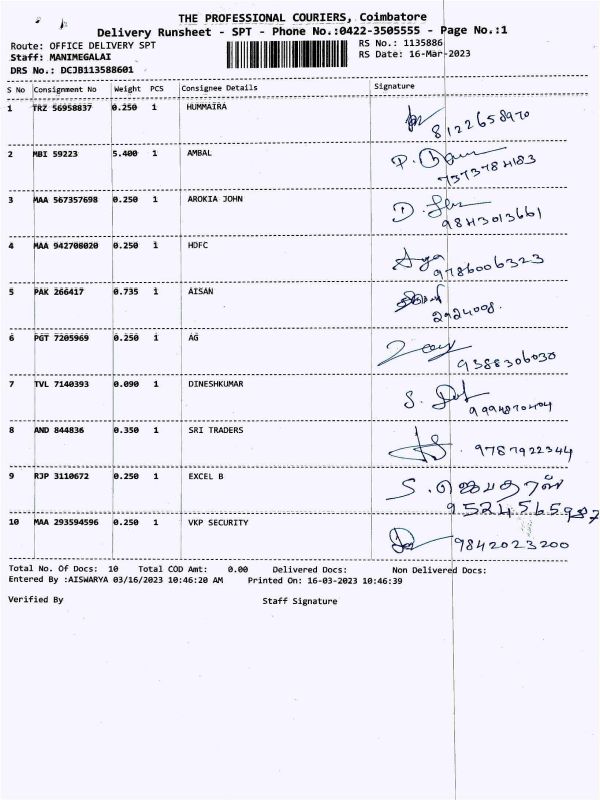 THE PROFESSIONAL COURIERS, Coimbatore
Delivery Runsheet - SPT - Phone No.:0422-3505555 - Page No.:1
Route: OFFICE DELIVERY SPT RS No.: 1135886
Staff: MANIMEGALAI RS Date: 16-Mar-2023
DRS No.: DCJB113588601
S No Consignment No Weight PCS Consignee Details Signature
1 TRZ 56958837 0.250 1 HUMMAIRA
8122658970
2 MBI 59223 5.400 1 AMBAL
7373784183
3 MAA 567357698 0.250 1 AROKIA JOHN
9843013661
4 MAA 942708020 0.250 1 HDFC
9786006323
5 PAK 266417 0.735 1 AISAN
2924008.
6 PGT 7205969 0.250 1 AG
9388306030
7 TVL 7140393 0.090 1 DINESHKUMAR
8 AND 844836 0.350 1 SRI TRADERS
9787922344
9 RJP 3110672 0.250 1 EXCEL B
9524565987
10 MAA 293594596 0.250 1 VKP SECURITY
9842023200
Total No. Of Docs: 10 Total COD Amt: 0.00 Delivered Docs: Non Delivered Docs:
Entered By :AISWARYA 03/16/2023 10:46:20 AM Printed On: 16-03-2023 10:46:39
Verified By Staff Signature